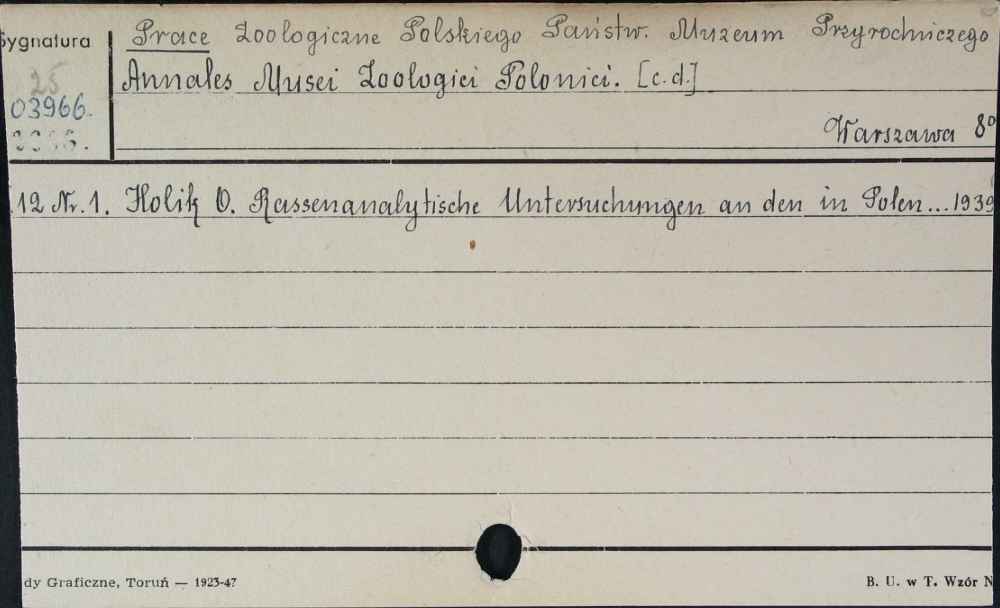 Sygnatura
Prace Zoologiczne Polskiego Państw. Muzeum Przyrodniczego
25
Annales Musei Zoologici Polonici. [c.d.]
03966.
Warszawa 8°
12 Nr. 1. Holik O. Rassenanalytische Untersuchungen an den in Polen... 1939
dy Graficzne, Toruń — 1923-47
B. U. w T. Wzór N